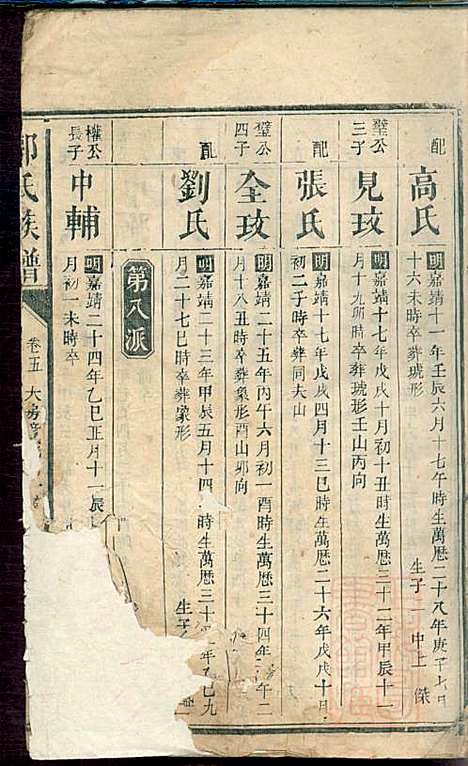 配
高氏
明嘉靖十一年壬辰六月十七午時生萬曆二十八年庚子七月
十六未時卒葬琥形
生子二 中上 傑
璧公
三子
見玟
明嘉靖十七年戊戌十月初十丑時生萬曆三十二年甲辰十一
月十九卯時卒葬琥形壬山丙向
配
張氏
明嘉靖十七年戊戌四月十三巳時生萬曆二十六年戊戌十月
初二子時卒葬同夫山
璧公
四子
全玟
明嘉靖二十五年丙午六月初一酉時生萬曆三十四年 午二
月十八丑時卒葬象形酉山卯向
配
劉氏
明嘉靖二十三年甲辰五月十四 時生萬曆三十 年乙巳九
月二十七巳時卒葬象形
生子
第八派
權公
長子
中輔
明嘉靖二十四年乙巳正月十一辰
月初一未時卒
氏族譜
卷五 大房